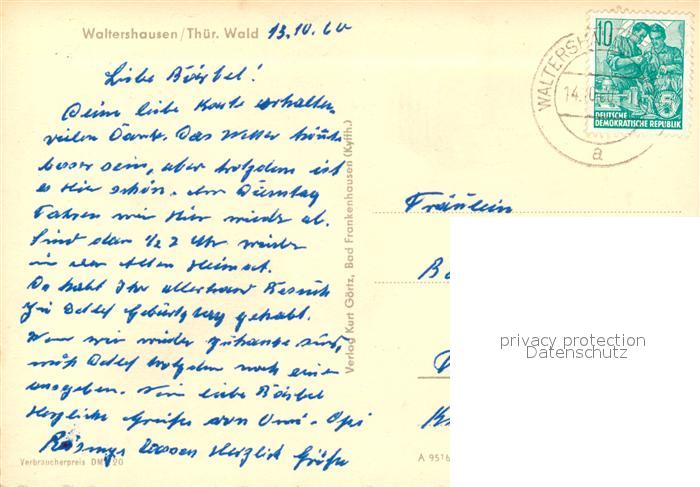 Waltershausen/Thür. Wald 13.10.60
Liebe Bärbel!
Deine liebe Karte erhalten
vielen Dank. Das Wetter könnte
besser sein, aber trotzdem ist
es hier schön. Am Dienstag
fahren wir hier wieder ab.
Sind dan ½ 2 Uhr wieder
in der Alten Heimat.
Da habt Ihr allerhand Besuch
zu Detlef Geburtstag gehabt.
Wenn wir wieder zuhause sind,
muß Detlef trotzdem noch einen
ausgeben. Nun liebe Bärbel
Herzliche Grüße von Omi - Opi
lassen Herzlich Grüße
Verbraucherpreis DM 0,20
Verlag Kurt Görtz, Bad Frankenhausen (Kyffh.)
WALTERSHAUSEN
14.10.60
a
10
DEUTSCHE
DEMOKRATISCHE REPUBLIK
Fräulein
privacy protection
Datenschutz
A 9516